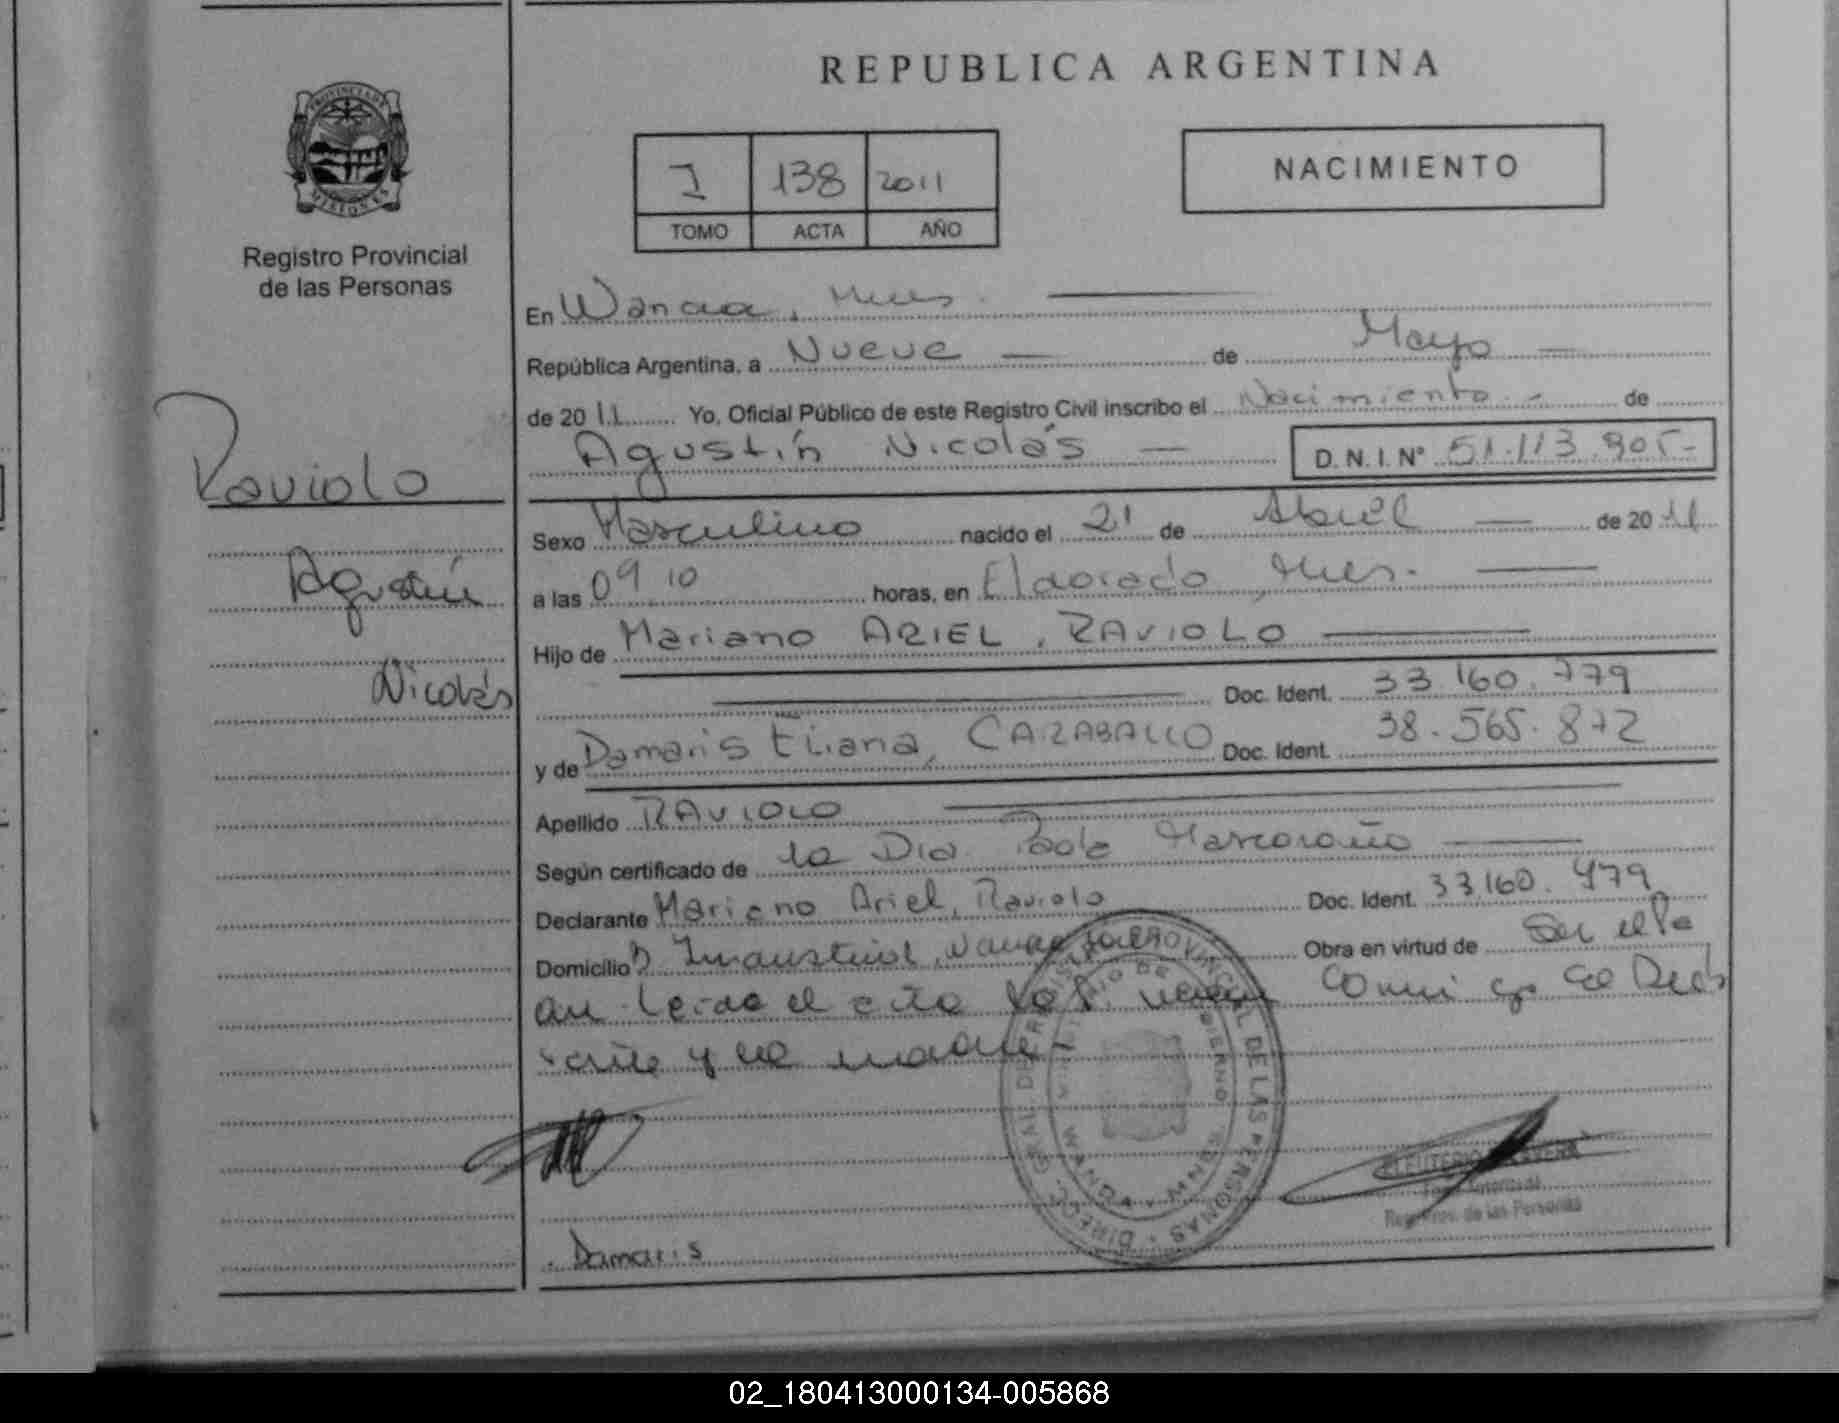 REPUBLICA ARGENTINA
PROVINCIA DE
MISIONES
Registro Provincial
de las Personas
I 138 2011
TOMO ACTA AÑO
NACIMIENTO
En Wanda, Mnes.
República Argentina, a Nueve de Mayo
de 2011 Yo, Oficial Público de este Registro Civil inscribo el Nacimiento de
Agustín Nicolás D.N.I. N° 51.113.905-
Raviolo
Agustín
Nicolás
Sexo Masculino nacido el 21 de Abril de 2011
a las 09 10 horas, en Eldorado, Mnes.
Hijo de Mariano ARIEL, RAVIOLO
Doc. Ident. 33.160.779
y de Damaris Eliana, CARABALLO Doc. Ident. 38.565.872
Apellido RAVIOLO
Según certificado de la Dra. Paola
Declarante Mariano Ariel, Raviolo Doc. Ident. 33.160.979
Domicilio Bº Industrial, Obra en virtud de
Leida el acta
y la madre-
DIRECC. GRAL. DE REGISTRO PROVINCIAL DE LAS PERSONAS
MINISTERIO DE GOBIERNO
WANDA
ELEUTERIO
Reg. Prov. de las Personas
Damaris
02_180413000134-005868